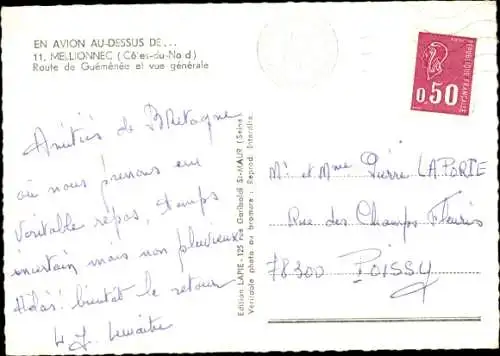 EN AVION AU-DESSUS DE...
11. MELLIONNEC (Côtes-du-Nord)
Route de Guéménée et vue générale
Amitiés de Bretagne
où nous prenons un
véritable repos, temps
incertain mais non pluvieux
Hélas! bientôt le retour
Lemaitre
Edition LAPIE - 125 rue Garibaldi St-MAUR (Seine)
Véritable photo au bromure : Reprod. interdite.
0,50
REPUBLIQUE FRANÇAISE
Mr et Mme Pierre LAPORTE
Rue des Champs Fleuris
78300 POISSY